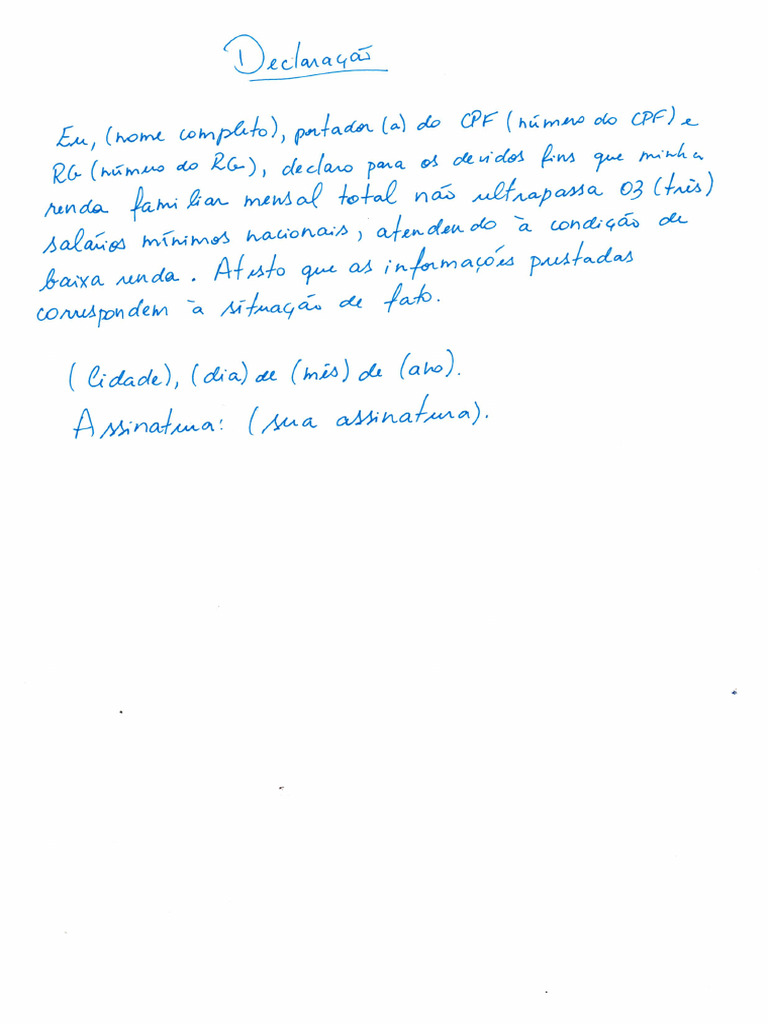 Declaração
Eu, (nome completo), portador (a) do CPF (número do CPF) e
RG (número do RG), declaro para os devidos fins que minha
renda familiar mensal total não ultrapassa 03 (três)
salários mínimos nacionais, atendendo à condição de
baixa renda. Atesto que as informações prestadas
correspondem à situação de fato.
(Cidade), (dia) de (mês) de (ano).
Assinatura: (sua assinatura).